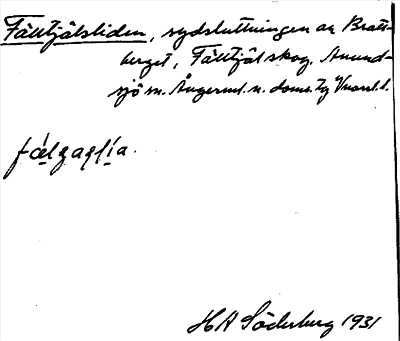 Fälltjälsliden, sydsluttningen av Bratt-
berget, Fälltjäl skog, Anund-
sjö sn. Ångerml. n. doms. Tg Vnorrl. l.
fælgaɛlia.
HA Söderberg 1931